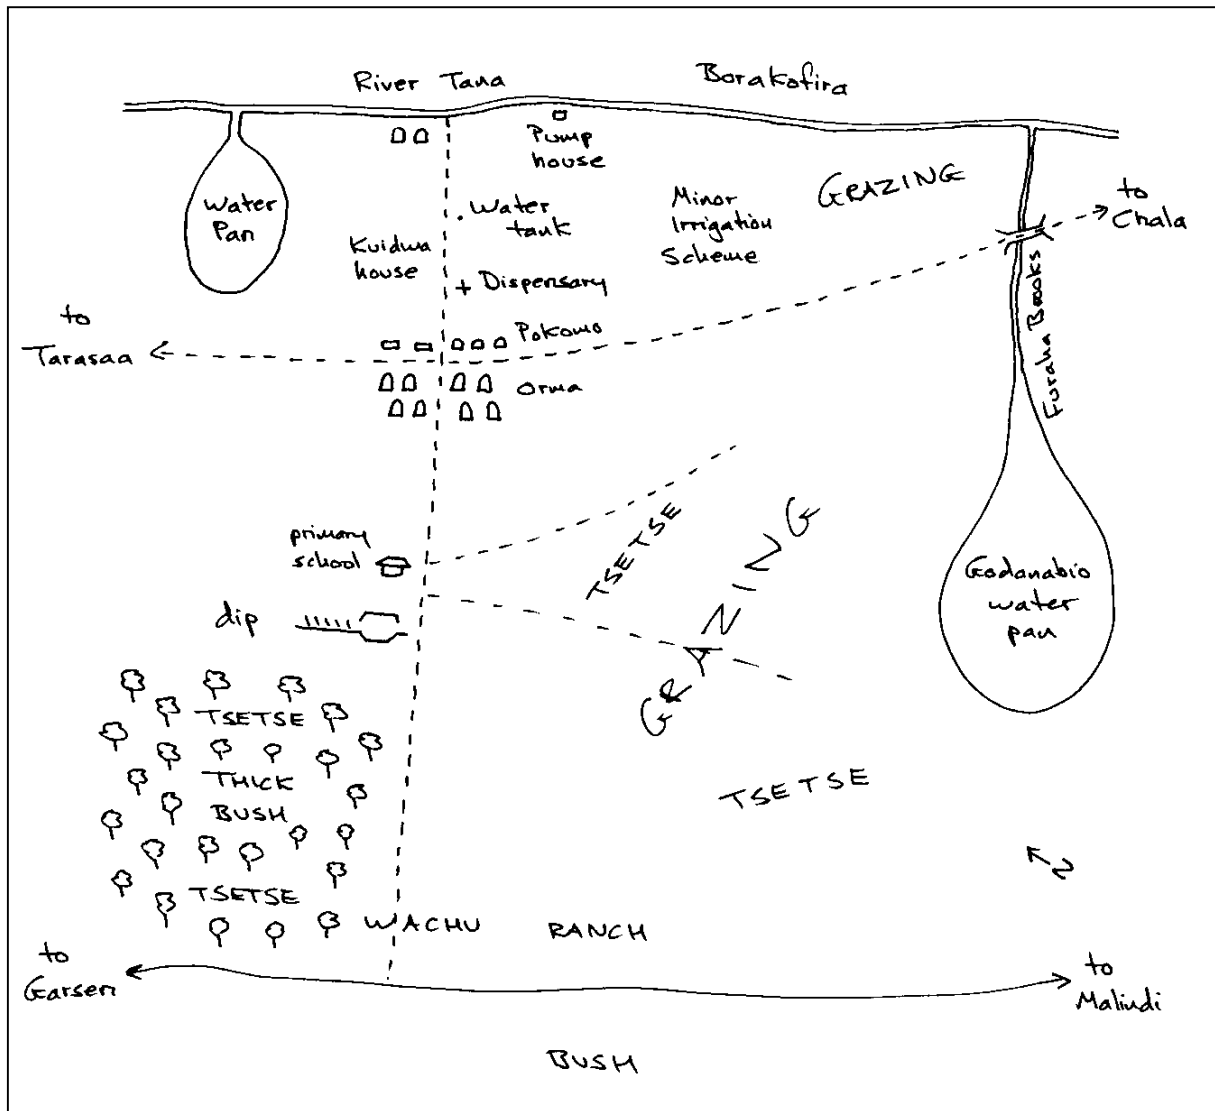 River Tana
Borakofira
Pump
house
GRAZING
to
Chala
Water
Pan
Water
tank
Minor
Irrigation
Scheme
Kuidma
house
+ Dispensary
Furaha Brooks
to
Tarasaa
Pokomo
Orma
primary
school
TSETSE
GRAZING
Godanabio
water
pan
dip
TSETSE
THICK
BUSH
TSETSE
TSETSE
N
WACHU RANCH
to
Garsen
to
Malindi
BUSH